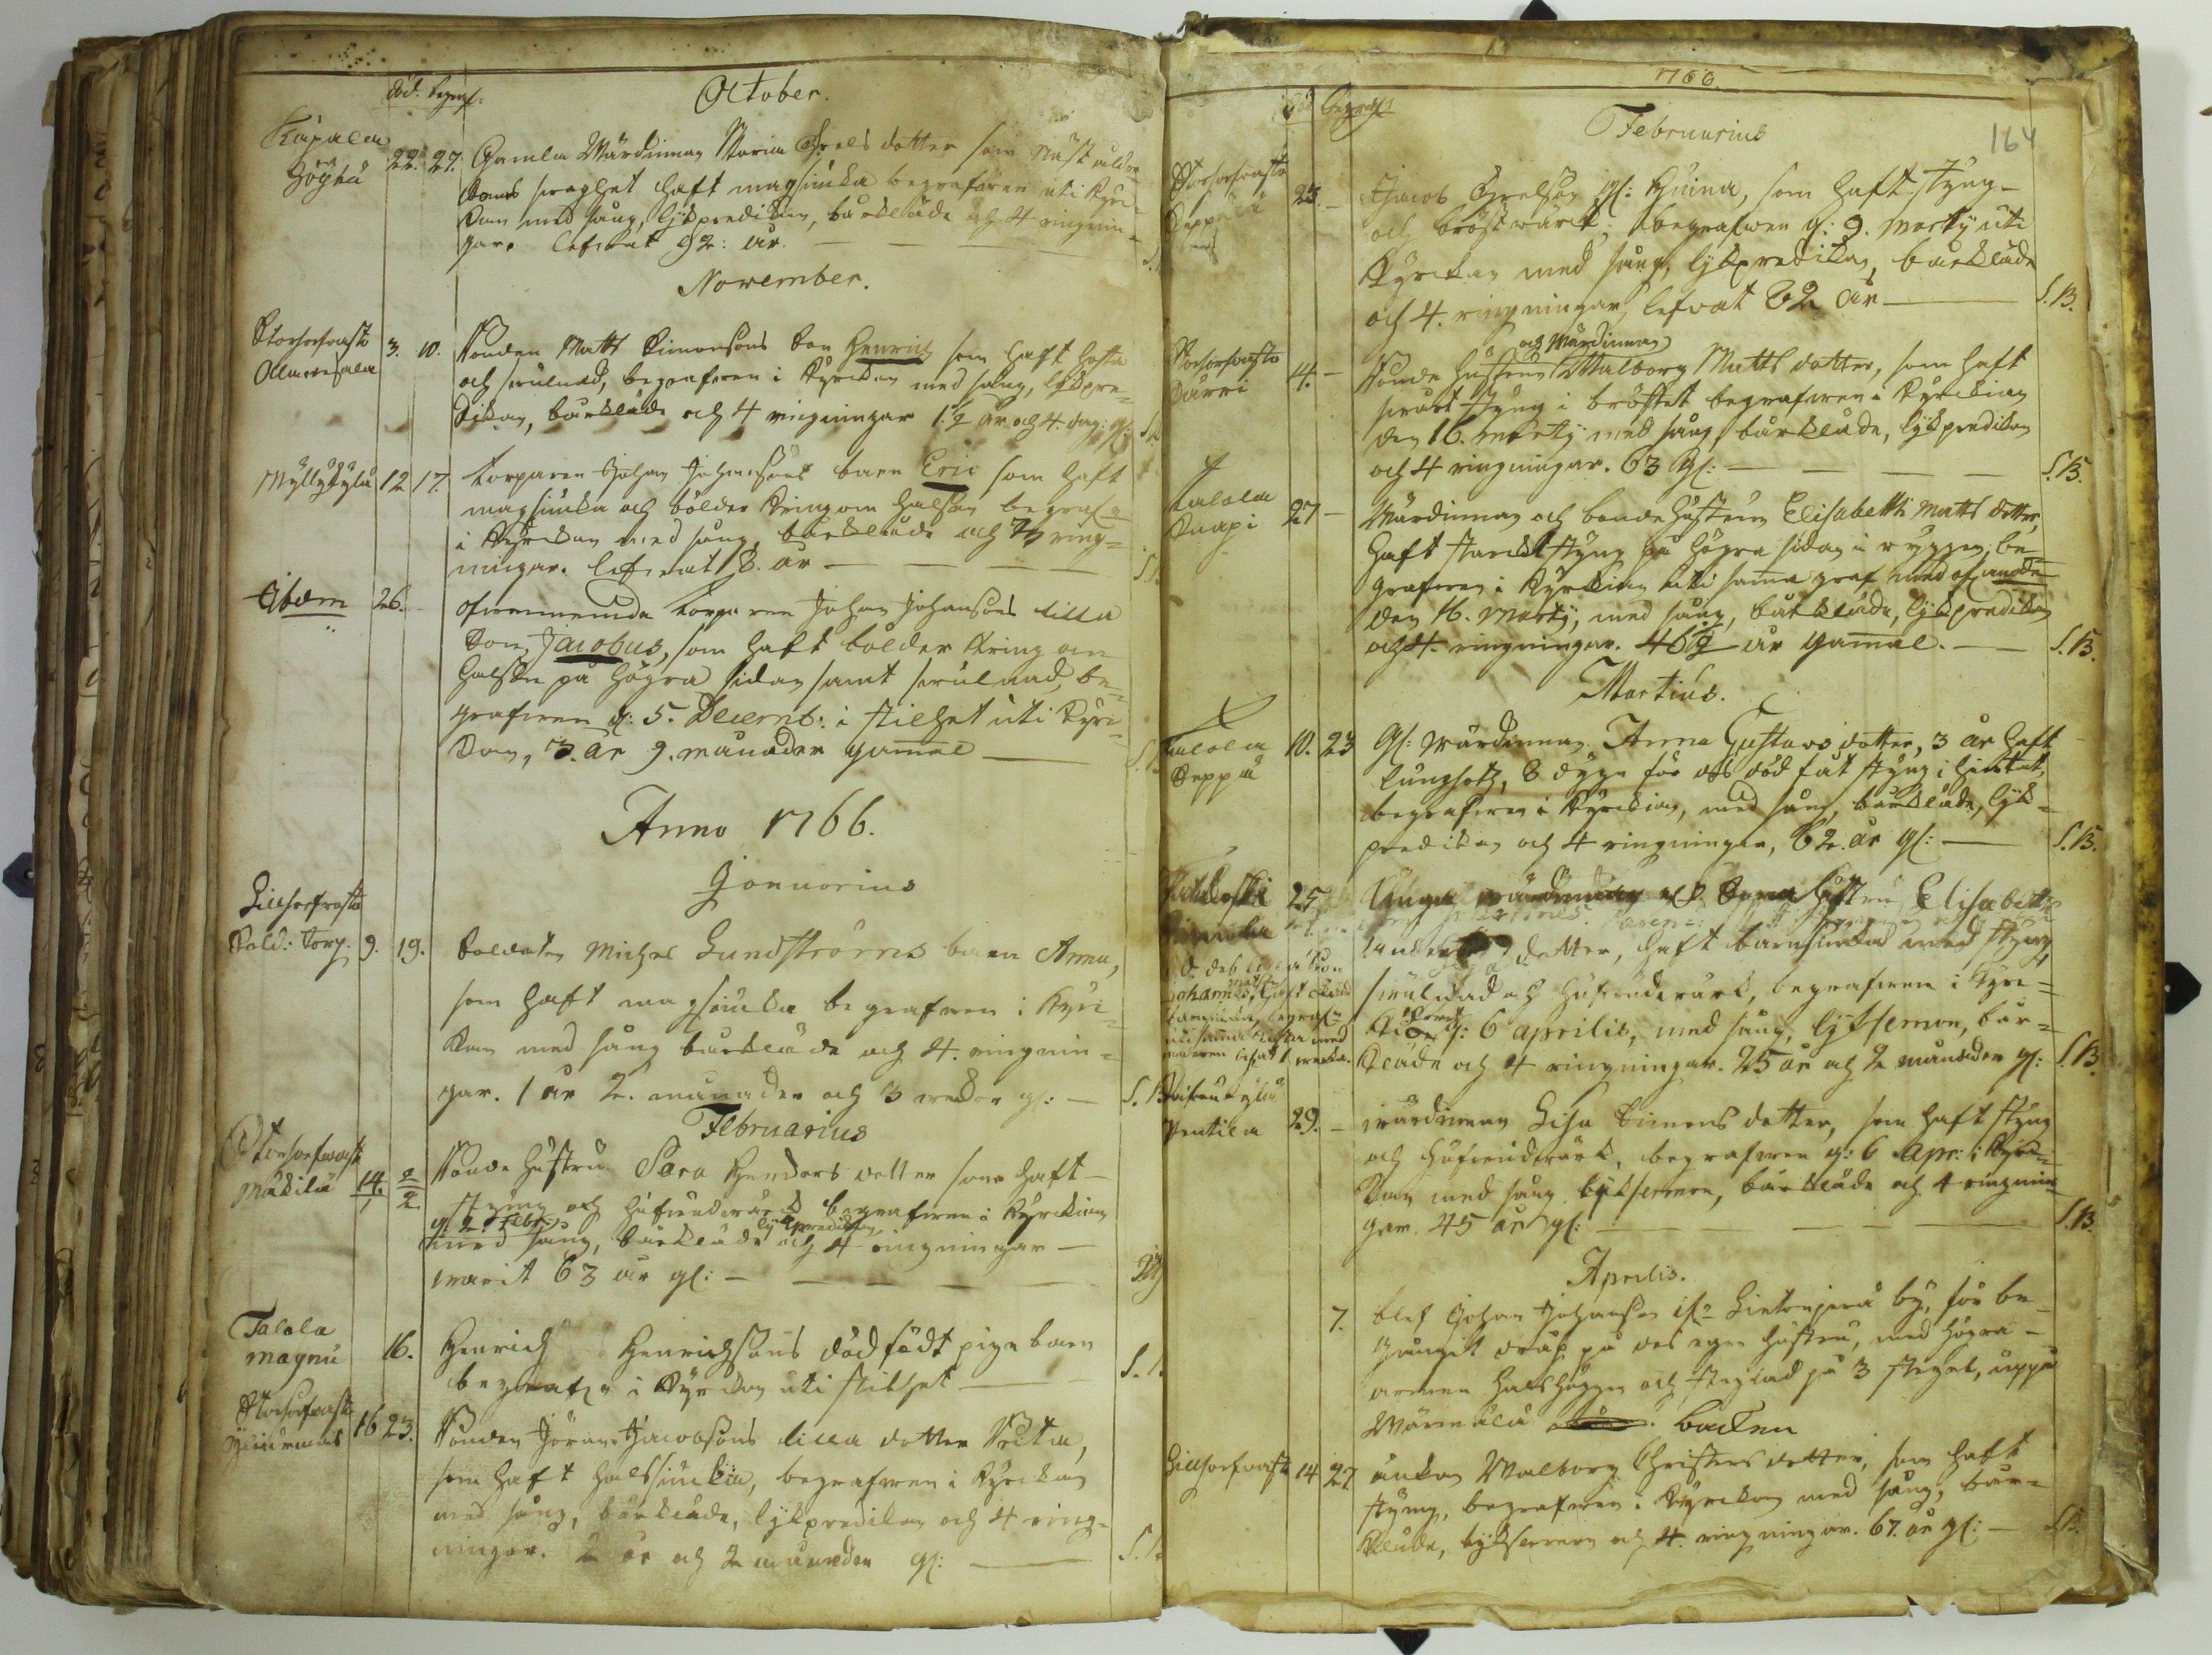 död. begraf:
October.
Kápala
Höyhä
22. 27. Gamla Wärdinnan Maria Grels dotter som näst ålder-
doms swaghet haft magsiuka begrafwen uti Kyrc-
kan med sång, lijkpredikan, bårkläde och 4 ringnin-
gar. lefwat 92: år.
November.
Storsorfwasto
Ollaworsala
3. 10. Bonden Matts Simonsons Son Henrich som haft hosta
och swulnad, begrafwen i Kyrckan med sång, lijkpre-
dikan, bårkläde och 4 ringningar 1½ år och 4. dag: gl:
Myllykylä 12 17. Torparen Johan Johansons barn Eric som haft
magsiuka och bölder kring om halsen begrafn
i Kyrckan med sång, bårkläde och ring-
ningar. lefwat 8. år
Ibdm 26. ofwannemnda Torparen Johan Johansons lilla
Son, Jacobus, som haft bölder kring om
halsen på högra sidan samt swulnad, be-
grafwen d: 5. Decemb: i stilhet uti Kyrc-
kan, 3. år 9. månader gammal
Anno 1766.
Januarius
Lillsorfwasto
Sold: Torp. 9. 19. Soldaten Michel Lundströms barn Anna,
som haft magsiuka begrafwen i Kyrc-
kan med sång bårkläde och 4. ringnin-
gar. 1 år 2. månader och 3 wekor gl: S.B.
Februarius
Storsorfwast
Mäkilä 14. 2/2. Bonde hustru Sara Henders dotter som haft
styng och hufwudwärck begrafwen i Kyrckian
d: 2. Febr:
lijkpredikan
med sång, bårkläde och 4 ringningar
warit 63 år gl:
Talola
Magnu
16. Henrich Henrichsons dödfödt pige barn
begrafn i Kyrckan uti stilhet
Storsorfwasto
16 23. Bonden Jöran Jacobsons lilla dotter Brita,
som haft halssiuka, begrafwen i Kyrckan
med sång, bårkläde, lijkpredikan och 4 ring-
ningar. 2 år och 2 månader gl:
1766.
164
Begraf:
Februarius
Storsorfwasto
Seppälä
23. Jacob Grelsson gl: Huina, som haft styng
och bröstwärck, begrafwen d: 9. Martij uti
Kyrckan med sång, lijkpredikan, bårkläde
och 4. ringningar, lefwat 62 år S.B.
Storsorfwasto
Sarri
och Wärdinnan
4. Bonde hustrun Walborg Matts dotter, som haft
swårt styng i bröstet begrafwen i Kyrckian
den 16. Martij med sång, bårkläde, lijkpredikan
och 4 ringningar. 63 gl: S.B.
Talola
Knapi
27 Wärdinnan och bonde hustrun Elisabeth Matts dotter,
haft starckt styng på högra sidan i ryggen, be-
grafwen i Kyrckian uti samma graf med
den 16. Martij, med sång, bårkläde, lijkpredikan
och 4. ringningar. 46½ år gammal. S.B.
Martius.
Talola
Seppä
10. 23 Gl: Wärdinnan Anna Gustavs dotter, 3 år haft
lungsot, 8 dygn för dess död fåt styng i hiertat,
begrafwen i Kyrckian, med sång, bårkläde, lijk-
predikan och 4 ringningar, 62. år gl: S.B.
25 Unga Wärdinnan och hustru Elisabeth
dotter, haft barnsiuka med styng,
swulnad och hufwudwärk, begrafwen i Kyrc-
d: 6 Aprilis, med sång, lijksermon, bår-
kläde och 4 ringningar. 25 år och 2 månader gl: S.B.
Johannes
Pentila 29. Wärdinnan Lisa Simons dotter, som haft styng
och hufwudwärk, begrafwen d: 6 Apr: i Kyrc-
kan med sång lijksermon, bårkläde och 4 ringnin-
gar. 45 år gl: S.B.
Aprilis.
7. blef Johan Johansson ifrån by, för be-
gångit dråp på des egen hustru, med högra
armen halshuggen och steglad på 3 stegel, uppå
backen
Lillsorfwasto 14 27 änkan Walborg Christers dotter, som haft
styng, begrafwen i Kyrckan med sång, bår-
kläde, lijksermon och 4. ringningar. 67. år gl: S.B.